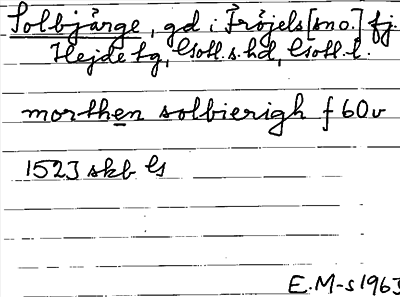 Solbjärge, gd i Fröjels [sno.] fj.
Hejde tg, Gotl. s. hd, Gotl. l.
morthen solbierigh f 60v
1523 skb G
E. M-s 1963